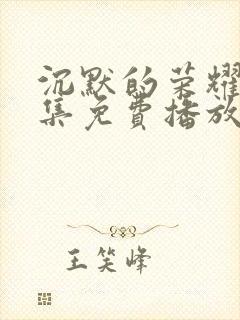 沉默的荣耀
集免費播放
王笑峰